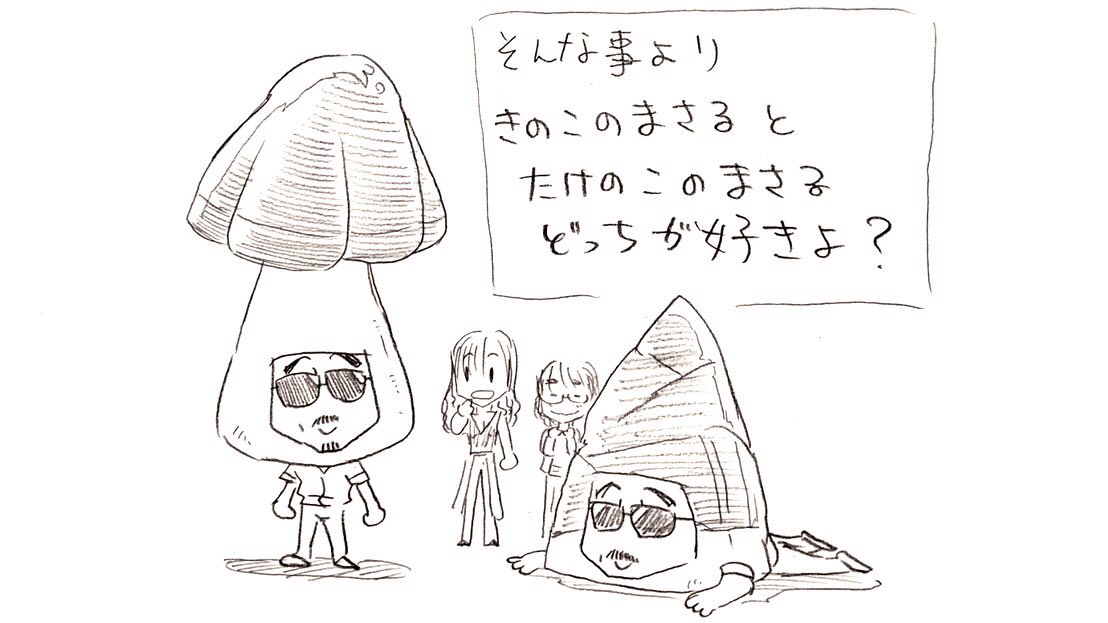 そんな事より
きのこのまさると
たけのこのまさる
どっちが好きよ？